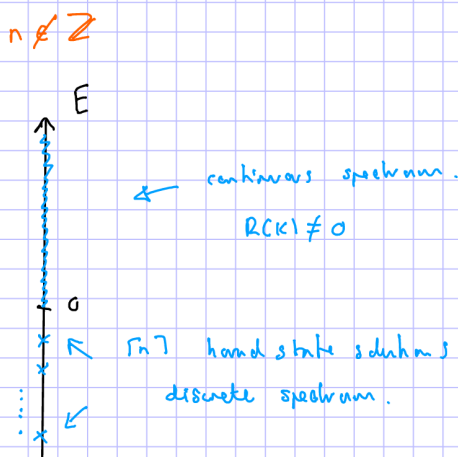 n ∉ ℤ
E
continuous spectrum.
R(k) ≠ 0
0
⌈n⌉ bound state solutions
discrete spectrum.